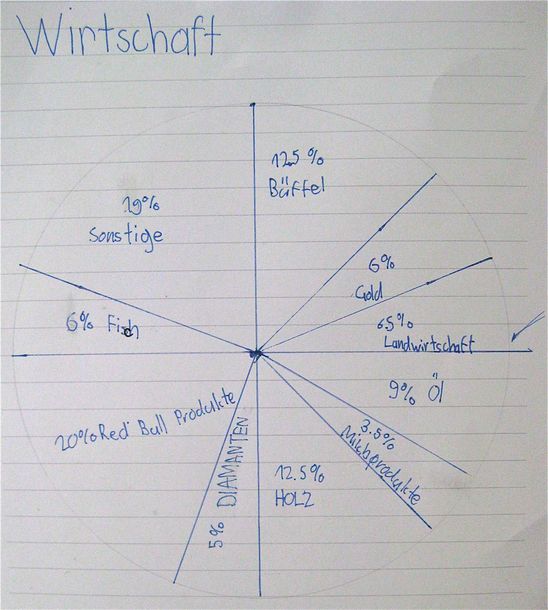 Wirtschaft
12.5 %
Büffel
6%
Gold
6.5%
Landwirtschaft
9% Öl
3.5%
Milchprodukte
12.5%
HOLZ
5% DIAMANTEN
20% Red Bull Produkte
6% Fisch
19%
Sonstige